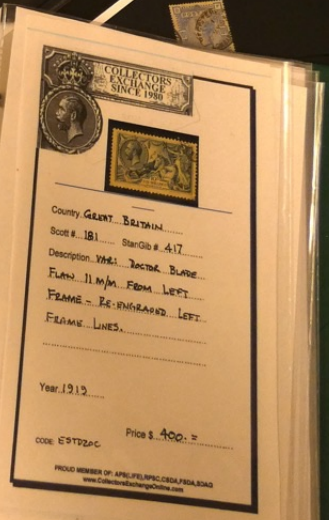 COLLECTORS
EXCHANGE
SINCE 1980
Country GREAT BRITAIN
Scott # 181 StanGib # 417
Description VAR: DOCTOR BLADE
FLAW 11 M/M FROM LEFT
FRAME - RE-ENGRAVED LEFT
FRAME LINES.
Year 1919
Price $ 400.=
CODE: ESTDZOC
PROUD MEMBER OF: APS(LIFE),RPSC,CSDA,FSDA,
www.CollectorsExchangeOnline.com